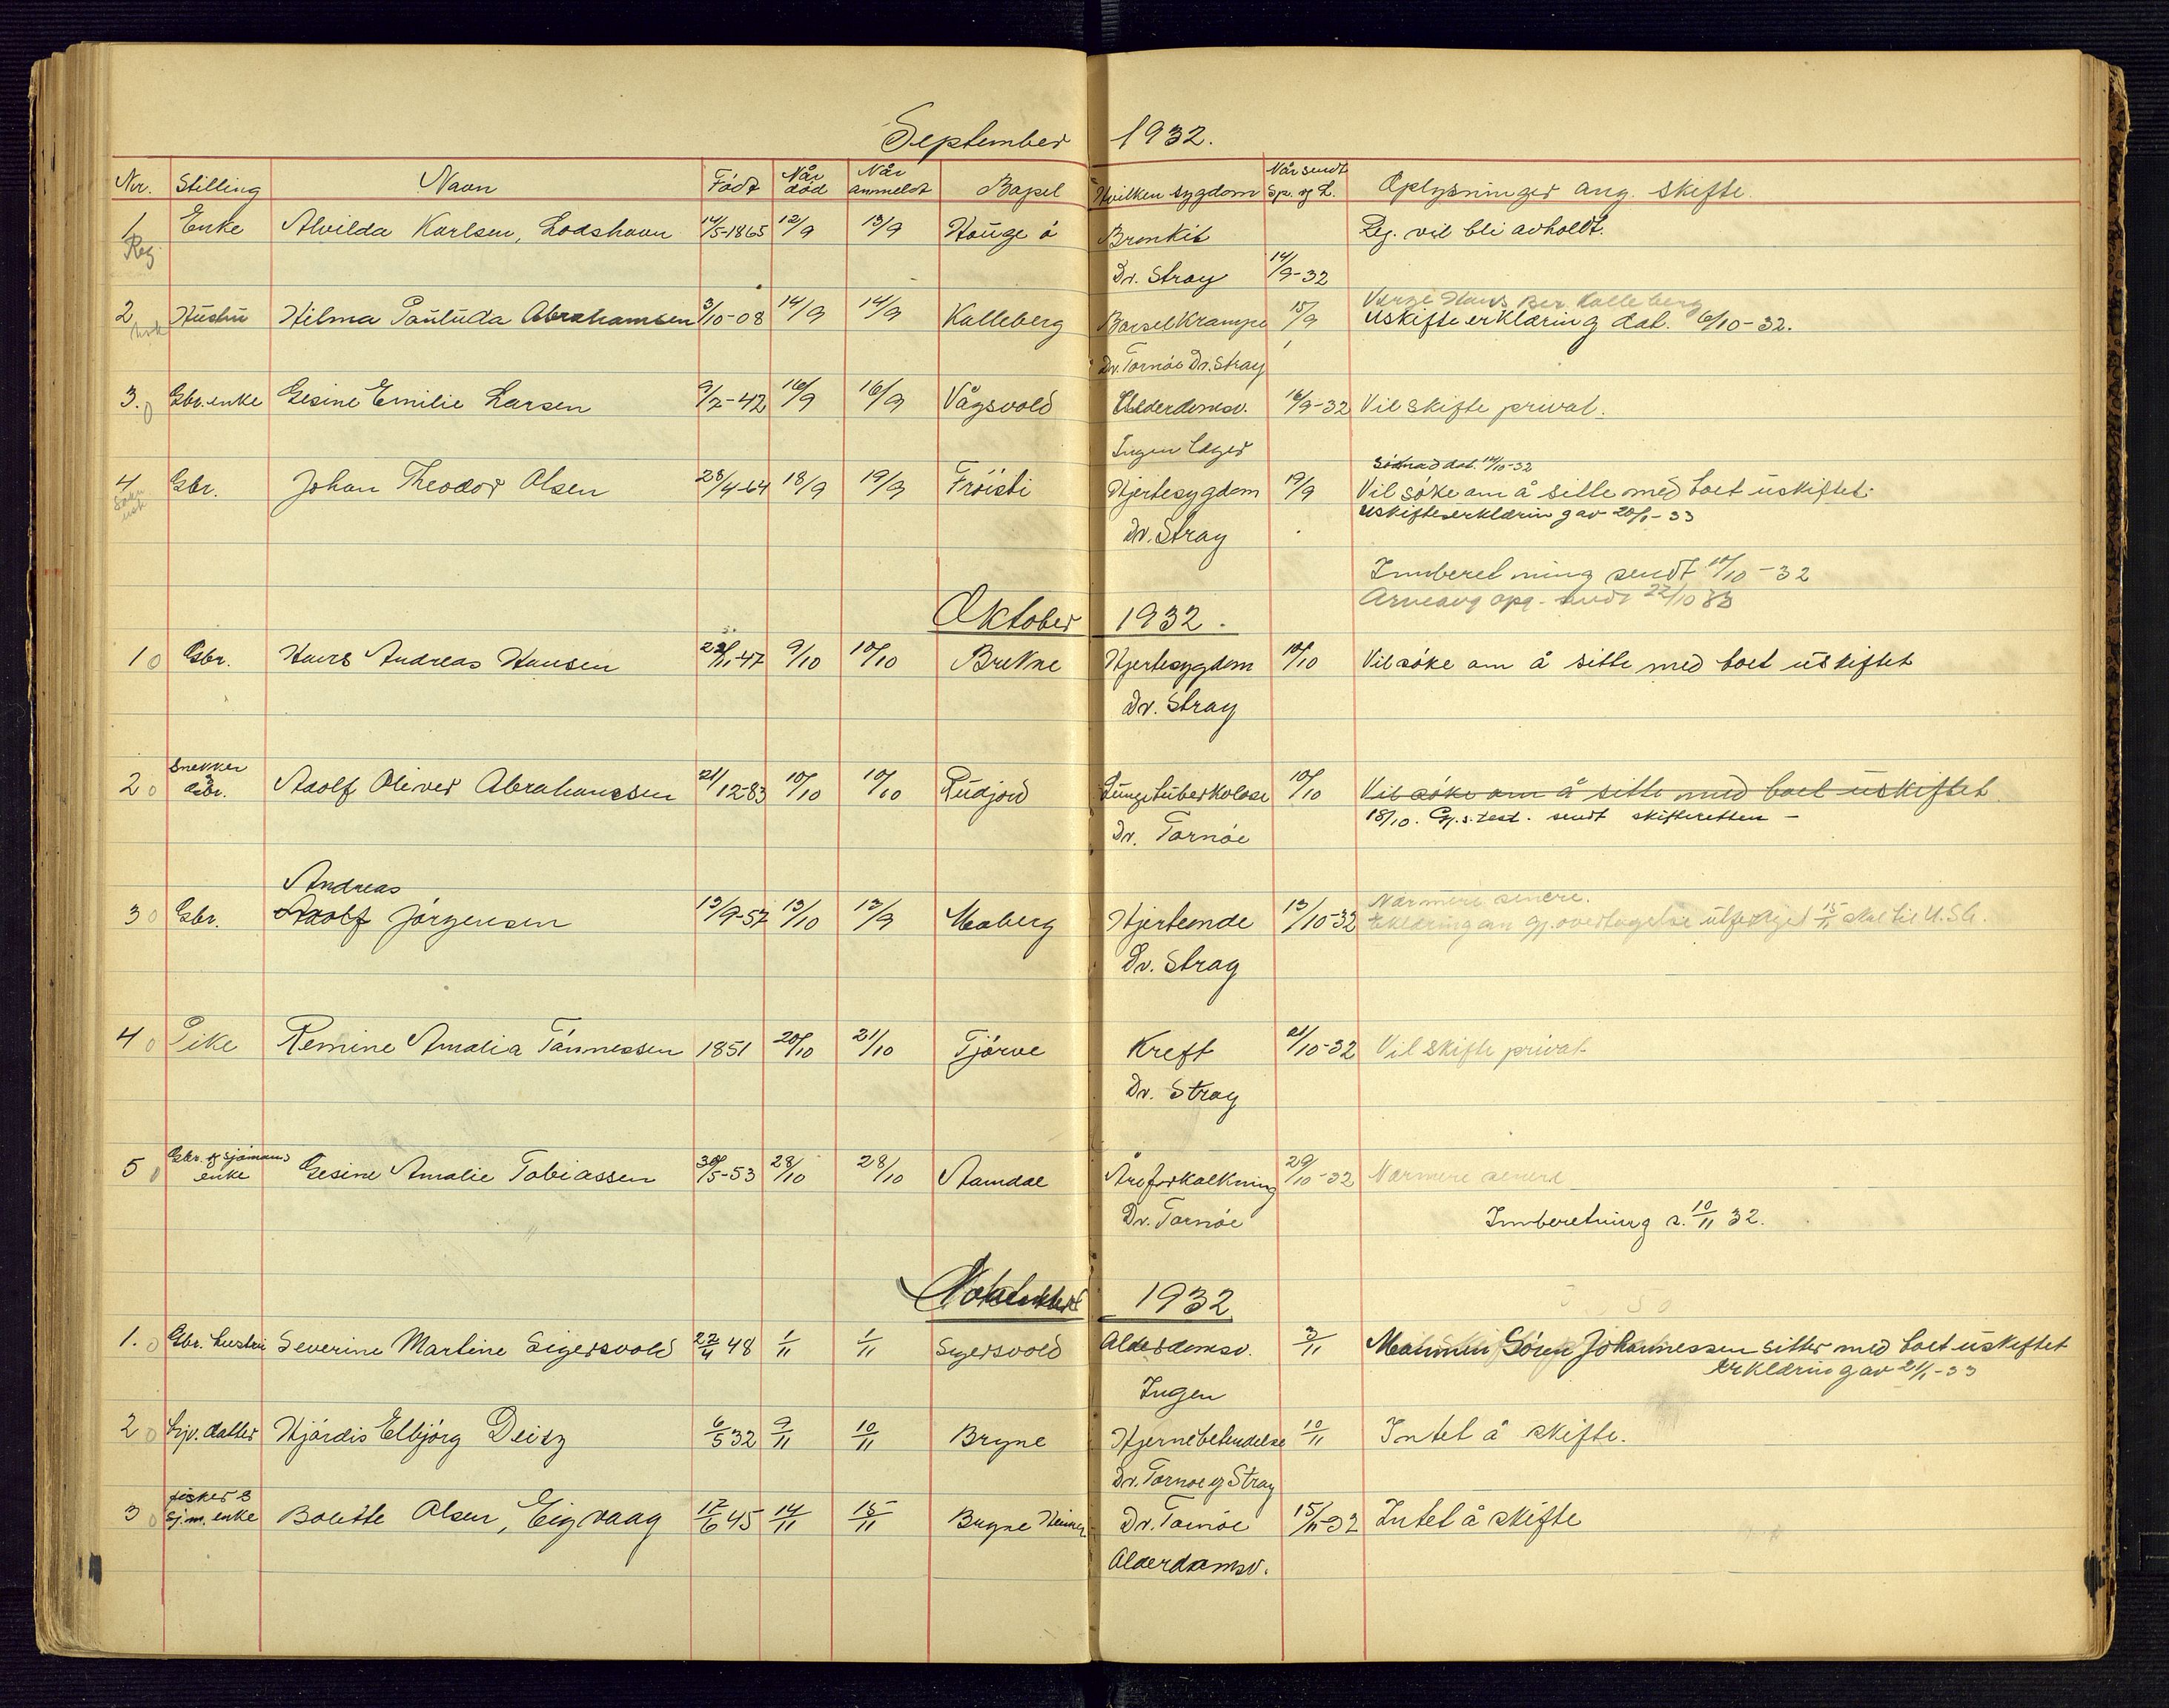 September 1932.
Nr. Stilling Navn Födt Når död Når anmeldt Bopel Hvilken sygdom Når sendt Sp. og L. Oplysninger ang. skifte.
1 Enke Alvilda Karlsen, Lodshavn 14/5-1865 12/9 13/9 Hauge ö Bronkit Reg. vil bli avholdt.
Reg.
Dr. Stray 14/9-32
Verge Hans Ber. Kalleberg
2 Hustru Hilma Pauluda Abrahamsen 3/10-08 14/9 14/9 Kalleberg Barselkrampe 15/9 Uskifteerklæring dat. 6/10-32.
Usk
Dr. Tornöe Dr. Stray
3. Gbr. enke Gesine Emilie Larsen 9/7-42 16/9 16/9 Vågsvold Alderdomsv. 16/9-32 Vil skifte privat.
Ingen Læger
Söknad dat. 14/10-32
4 Gbr. Johan Theodor Olsen 28/4-64 18/9 19/9 Fröisti Hjertesygdom 19/9 Vil söke om å sitte med boet uskiftet.
Søkn usk
Uskifteerklæring av 20/1-33
Dr. Stray
Innberetning sendt 11/10-32
Arveavg opg. sendt 22/10 33
Oktober 1932.
1 Gbr. Hans Andreas Hansen 22/11-47 9/10 10/10 Brekne Hjertesygdom 10/10 Vil söke om å sitte med boet uskiftet
Dr. Stray
2 Snekker & Gbr. Adolf Oliver Abrahamsen 21/12-83 10/10 10/10 Rudjord Lungetuberkolose 10/10 Vil söke om å sitte med boet uskiftet
18/10. Gj. s. test. sendt skifteretten -
Dr. Tornöe
Andreas
3 Gbr. Adolf Jörgensen 13/9-57 13/10 13/9 Maberg Hjertemde 13/10-32 Nærmere senere.
Erklæring om gj. overtagelse utferdiget 15/11 skal til U.Sk.
Dr. Stray
4 Pike Remine Amalia Tönnessen 1851 20/10 21/10 Tjörve Kreft 21/10-32 Vil skifte privat.
Dr. Stray
5 Gbr. og sjömans enke Gesine Amalie Tobiassen 30/5-53 28/10 28/10 Aamdal Åreforkalkning 29/10-32 Nærmere senere
Dr. Tornöe Innberetning s. 10/11 32.
November 1932
1. Gbr. hustru Severine Martine Sigersvold 27/4 48 1/11 1/11 Sigersvold Alderdomsv. 3/11 Mannen Sören Johannessen sitter med boet uskiftet
Erklæring av 21/1-33
Ingen
2 datter Hjördis Elbjörg Deisz 6/5 32 9/11 10/11 Bryne Hjernebetendelse 10/11 Intet å skifte.
Dr. Tornoe og Stray
3 fisker & sj.m. enke Bolette Olsen, Eigvaag 17/6 45 14/11 15/11 Bryne Heimen Dr. Tornöe 15/11-32 Intet å skifte
Alderdomsv.